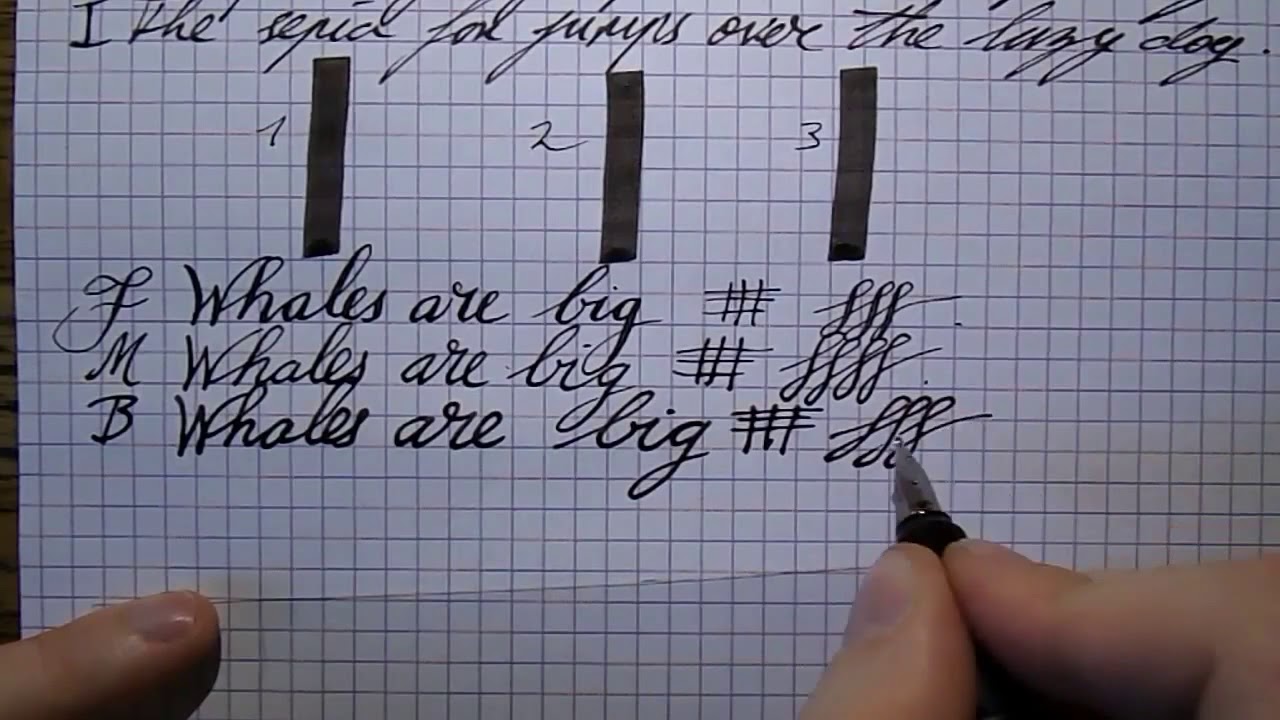 I the sepia fox jumps over the lazy dog.
1 2 3
F Whales are big ### fff.
M Whales are big ### ffff.
B Whales are big ### fff